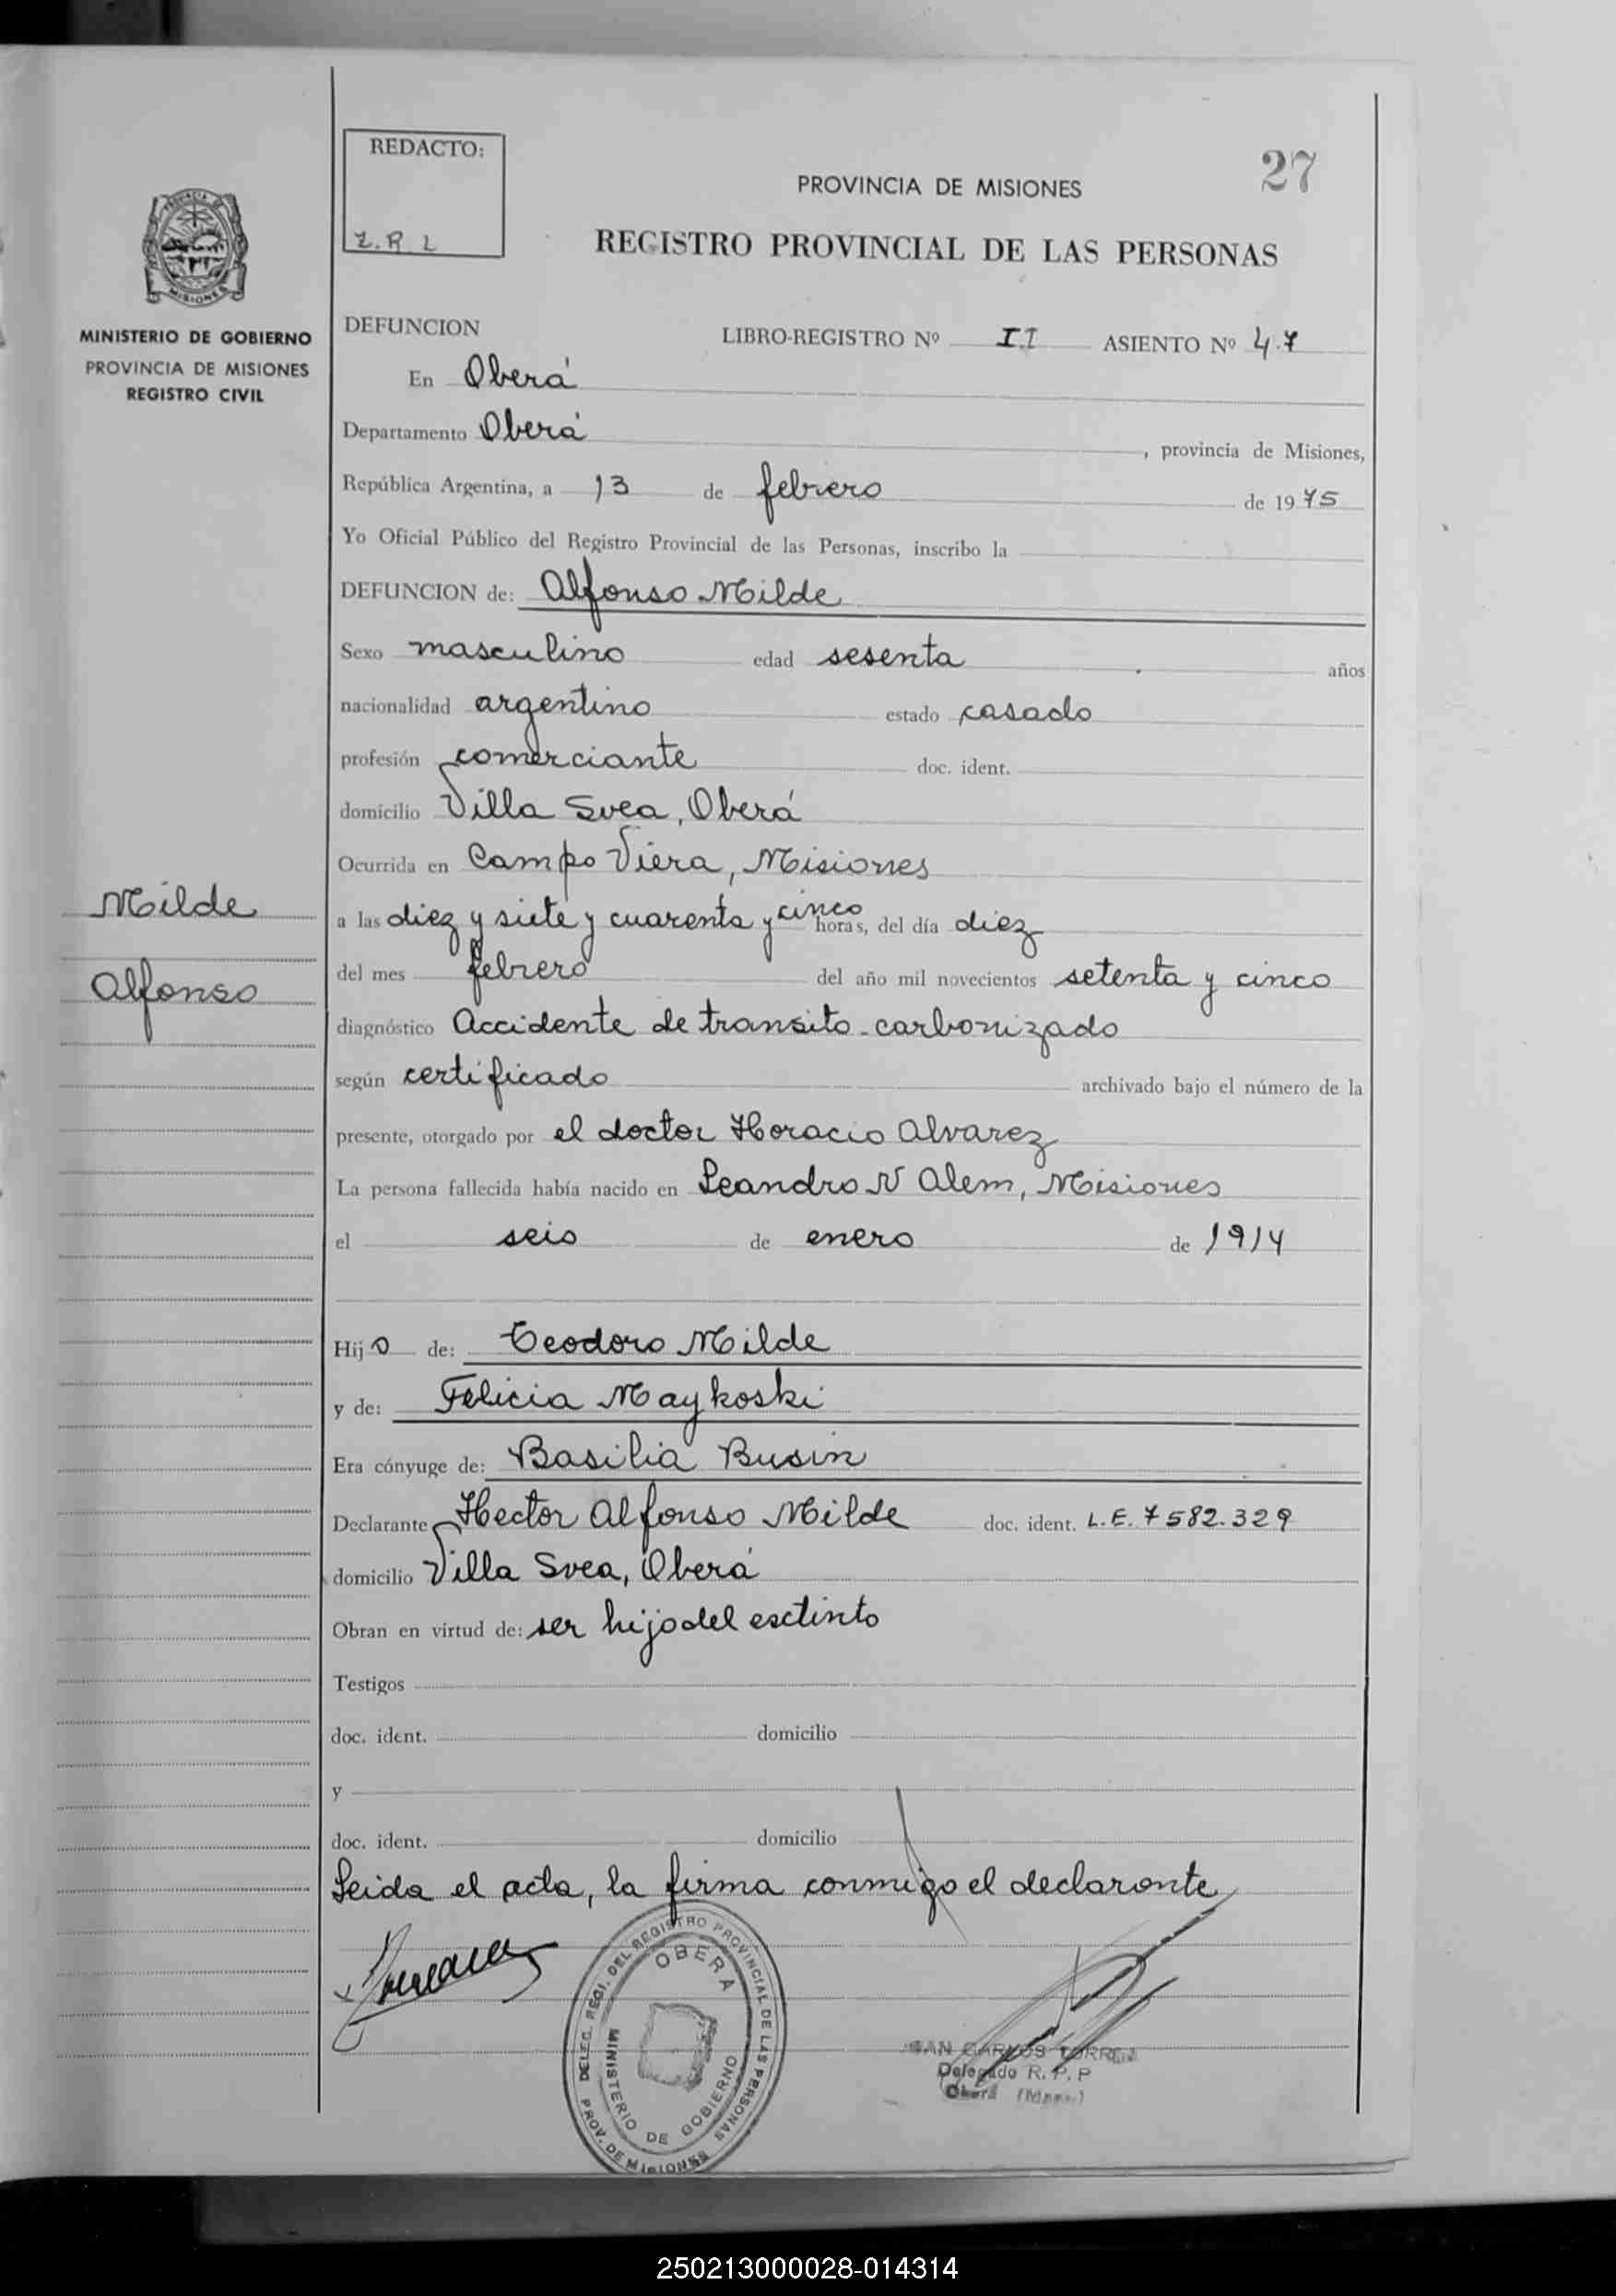 REDACTO:
Z.R L
27
PROVINCIA DE MISIONES
REGISTRO PROVINCIAL DE LAS PERSONAS
PROVINCIA DE
MISIONES
MINISTERIO DE GOBIERNO
PROVINCIA DE MISIONES
REGISTRO CIVIL
DEFUNCION LIBRO-REGISTRO Nº II ASIENTO Nº 47
En Oberá
Departamento Oberá, provincia de Misiones,
República Argentina, a 13 de febrero de 1975
Yo Oficial Público del Registro Provincial de las Personas, inscribo la
DEFUNCION de: Alfonso Milde
Sexo masculino edad sesenta años
nacionalidad argentino estado casado
profesión comerciante doc. ident.
domicilio Villa Svea, Oberá
Ocurrida en Campo Viera, Misiones
Milde
Alfonso
a las diez y siete y cuarenta y cinco horas, del día diez
del mes febrero del año mil novecientos setenta y cinco
diagnóstico Accidente de transito - carbonizado
según certificado archivado bajo el número de la
presente, otorgado por el doctor Horacio Alvarez
La persona fallecida había nacido en Leandro N Alem, Misiones
el seis de enero de 1914
Hijo de: Teodoro Milde
y de: Felicia Maykoski
Era cónyuge de: Basilia Busin
Declarante Hector Alfonso Milde doc. ident. L.E. 7582.329
domicilio Villa Svea, Oberá
Obran en virtud de: ser hijo del esctinto
Testigos
doc. ident. domicilio
y
doc. ident. domicilio
Leida el acta, la firma conmigo el declarante
DELEG. REGI. DEL REGISTRO PROVINCIAL DE LAS PERSONAS
PROV. DE MISIONES
OBERA
MINISTERIO DE GOBIERNO
CARLOS TORRES
Delegado R.P.P
Oberá
250213000028-014314